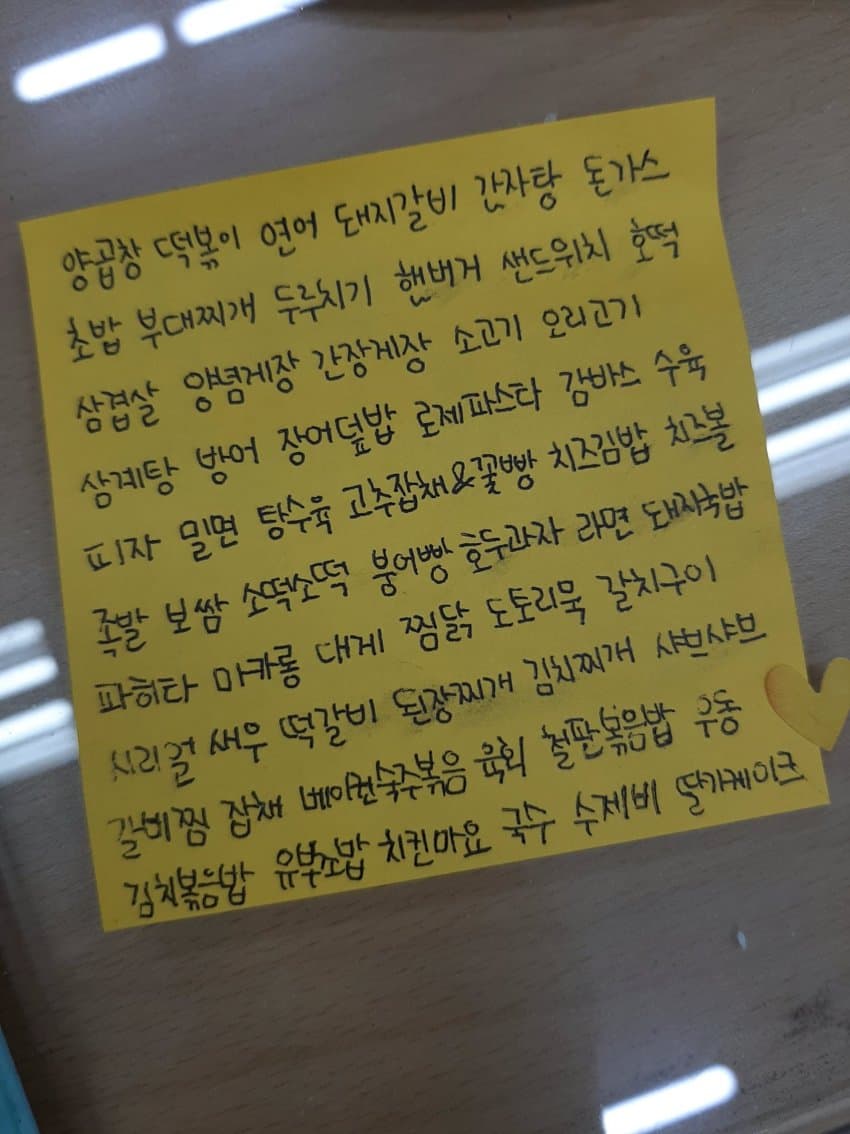 양곱창 떡볶이 연어 돼지갈비 감자탕 돈가스
초밥 부대찌개 두루치기 햄버거 샌드위치 호떡
삼겹살 양념게장 간장게장 소고기 오리고기
삼계탕 방어 장어덮밥 로제파스타 감바스 수육
피자 밀면 탕수육 고추잡채&꽃빵 치즈김밥 치즈볼
족발 보쌈 소떡소떡 붕어빵 호두과자 라면 돼지국밥
파히타 마카롱 대게 찜닭 도토리묵 갈치구이
시리얼 새우 떡갈비 된장찌개 김치찌개 샤브샤브
갈비찜 잡채 베이컨숙주볶음 육회 철판볶음밥 우동
김치볶음밥 유부초밥 치킨마요 국수 수제비 딸기케이크